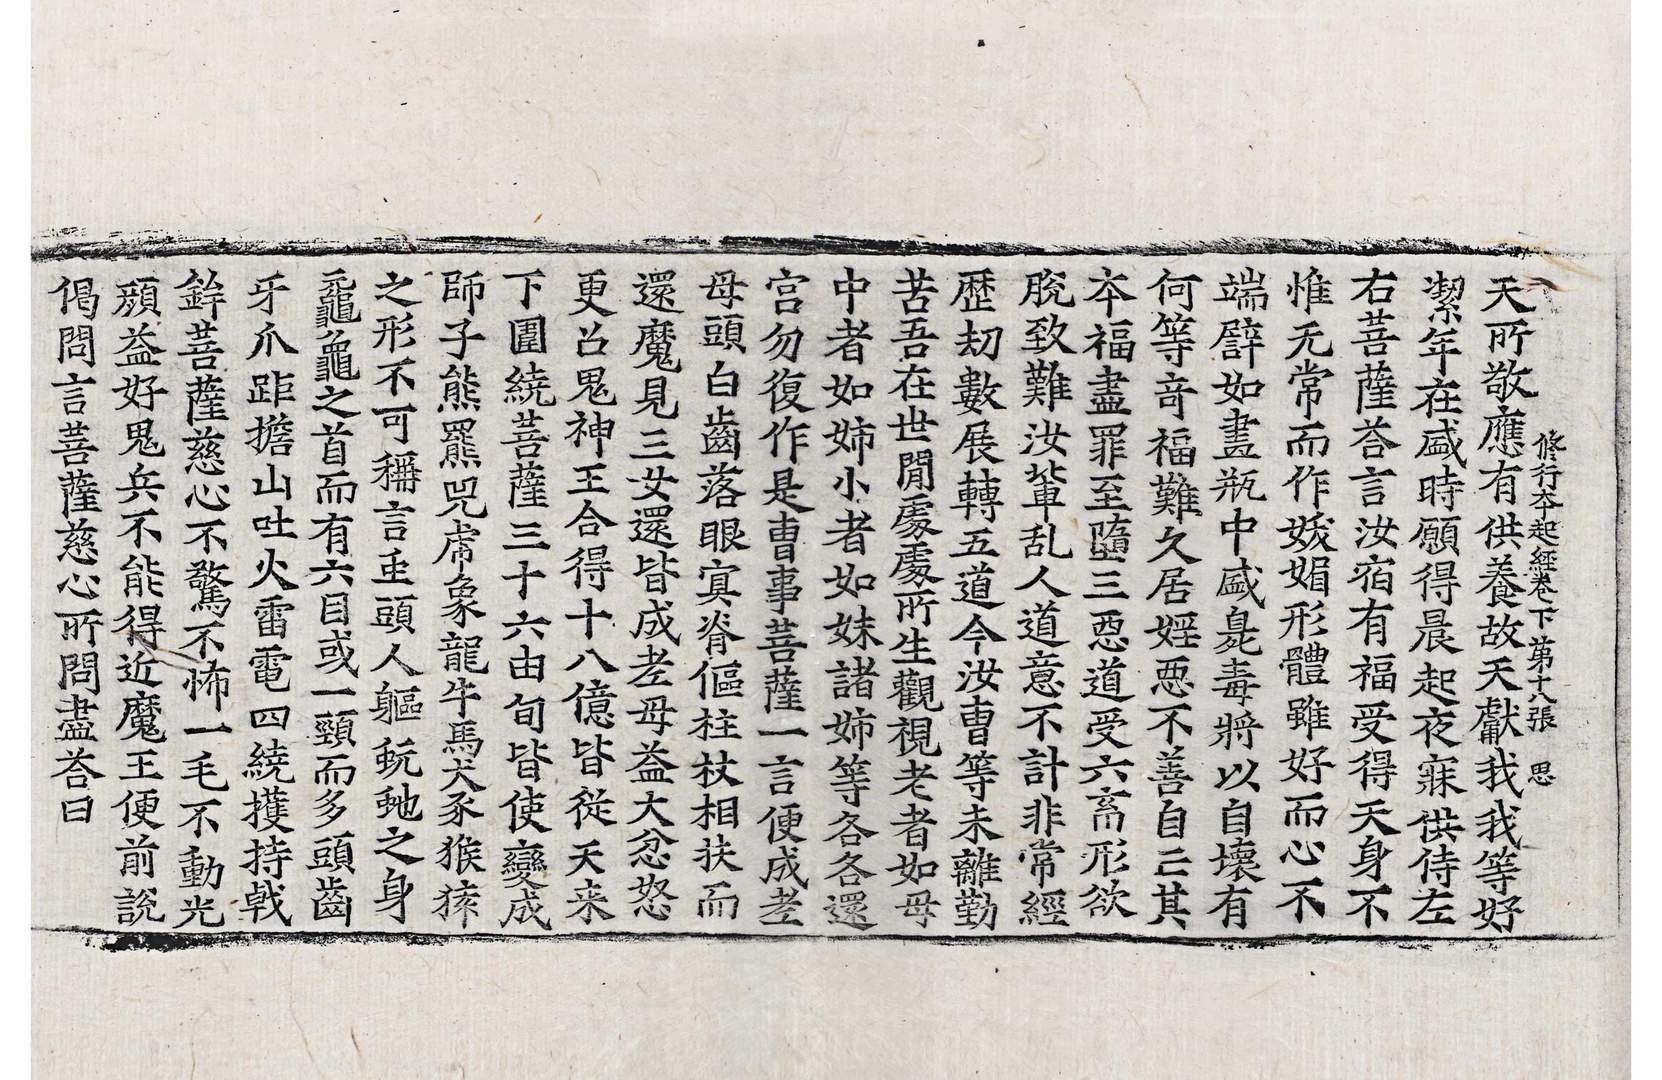 修行夲起經卷下 第十八張 思
天所敬應有供養故天獻我我等好
潔年在盛時願得晨起夜寐供侍左
右菩薩荅言汝宿有福受得天身不
惟无常而作妖媚形體雖好而心不
端譬如畫瓶中盛臰毒將以自壞有
何等竒福難久居婬惡不善自亡其
夲福盡罪至墮三惡道受六畜形欲
脫致難汝輩乱人道意不計非常經
歷劫數展轉五道今汝曹等未離勤
苦吾在世閒處處所生觀視老者如母
中者如姉小者如妹諸姉等各各還
宮勿復作是曹事菩薩一言便成老
母頭白齒落眼冥脊傴柱杖相扶而
還魔見三女還皆成老母益大忿怒
更召鬼神王合得十八億皆從天来
下圍繞菩薩三十六由旬皆使變成
師子熊羆兕虎象龍牛馬犬豕猴猨
之形不可稱言虫頭人軀虺虵之身
黿龜之首而有六目或一頸而多頭齒
牙爪距擔山吐火雷電四繞擭持戟
鉾菩薩慈心不驚不怖一毛不動光
顏益好鬼兵不能得近魔王便前說
偈問言菩薩慈心所問盡荅曰